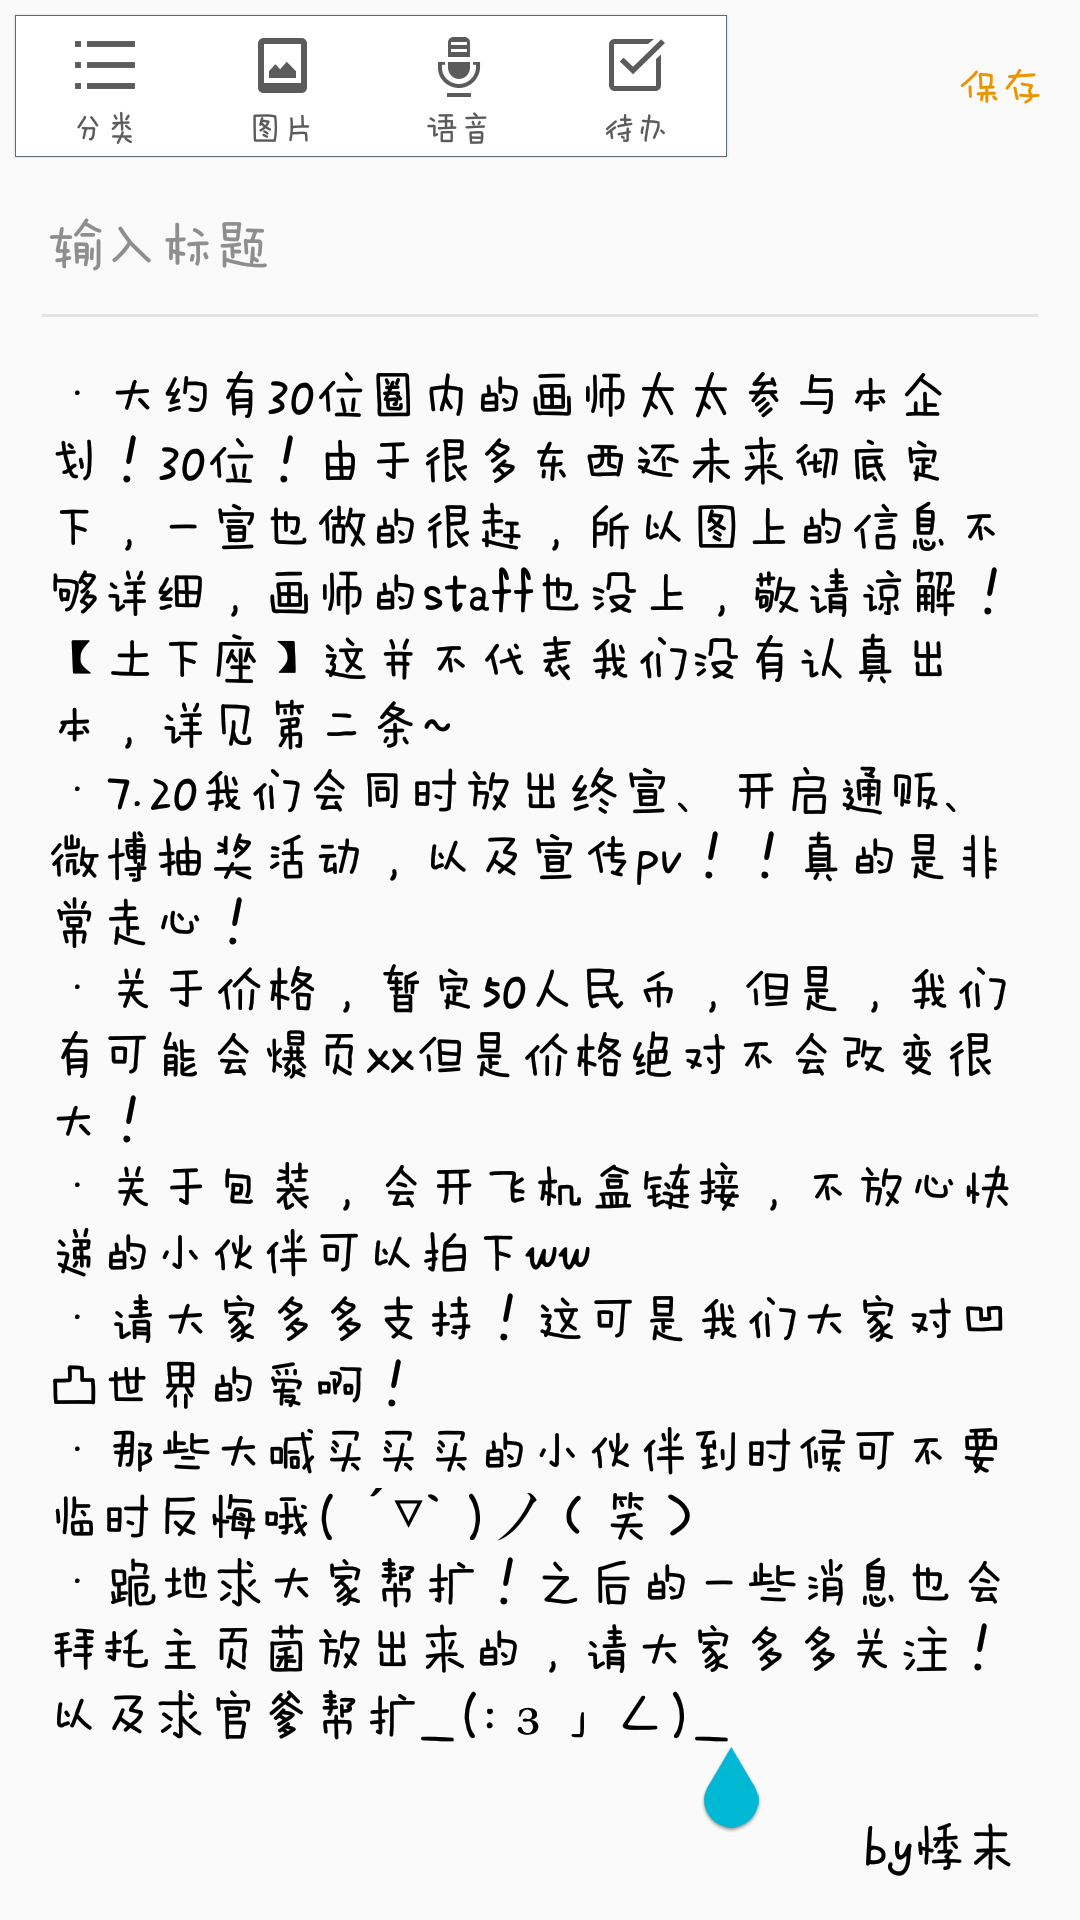 分类 图片 语音 待办 保存
输入标题
·大约有30位圈内的画师太太参与本企
划！30位！由于很多东西还未来彻底定
下，一宣也做的很赶，所以图上的信息不
够详细，画师的staff也没上，敬请谅解！
【土下座】这并不代表我们没有认真出
本，详见第二条~
·7.20我们会同时放出终宣、开启通贩、
微博抽奖活动，以及宣传pv！！真的是非
常走心！
·关于价格，暂定50人民币，但是，我们
有可能会爆页xx但是价格绝对不会改变很
大！
·关于包装，会开飞机盒链接，不放心快
递的小伙伴可以拍下ww
·请大家多多支持！这可是我们大家对凹
凸世界的爱啊！
·那些大喊买买买的小伙伴到时候可不要
临时反悔哦( ´▽` )ノ（笑）
·跪地求大家帮扩！之后的一些消息也会
拜托主页菌放出来的，请大家多多关注！
以及求官爹帮扩_(:з」∠)_
by悸末